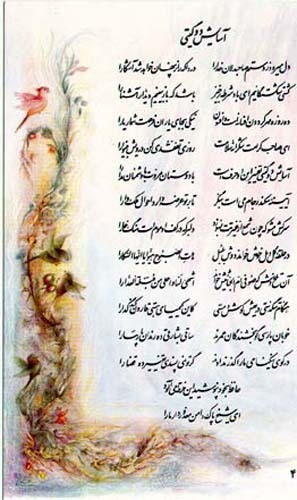 آسایش دو گیتی
دل میرود ز دستم صاحبدلان خدا را دردا که راز پنهان خواهد شد آشکارا
کشتی شکستگانیم ای باد شرطه برخیز باشد که باز بینیم دیدار آشنا را
ده روزه مهر گردون افسانه است و افسون نیکی بجای یاران فرصت شمار یارا
ای صاحب کرامت شکرانه سلامت روزی تفقدی کن درویش بینوا را
آسایش دو گیتی تفسیر این دو حرفست با دوستان مروت با دشمنان مدارا
آیینه سکندر جام می است بنگر تا بر تو عرضه دارد احوال ملک دارا
سرکش مشو که چون شمع از غیرتت بسوزد دلبر که در کف او موم است سنگ خارا
در حلقه گل و مل خوش خواند دوش بلبل هات الصبوح هبوا یا ایها السکارا
آن تلخ وش که صوفی ام الخبائثش خواند اشهی لنا و احلی من قبلة العذارا
هنگام تنگدستی در عیش کوش و مستی کاین کیمیای هستی قارون کند گدا را
خوبان پارسی گو بخشندگان عمرند ساقی بشارتی ده رندان پارسا را
در کوی نیکنامی ما را گذر ندادند گر تو نمی پسندی تغییر ده قضا را
حافظ بخود نپوشید این خرقه می آلود
ای شیخ پاک دامن معذور دار ما را
۴